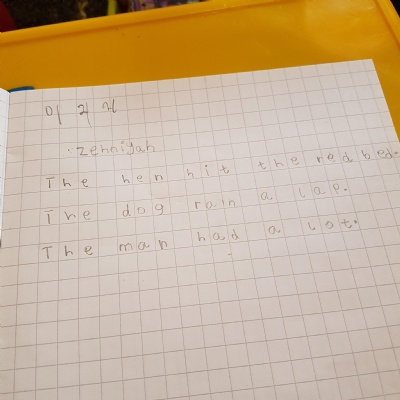 zehniyah
The hen hit the red bed.
The dog rain a lap.
The man had a lot.